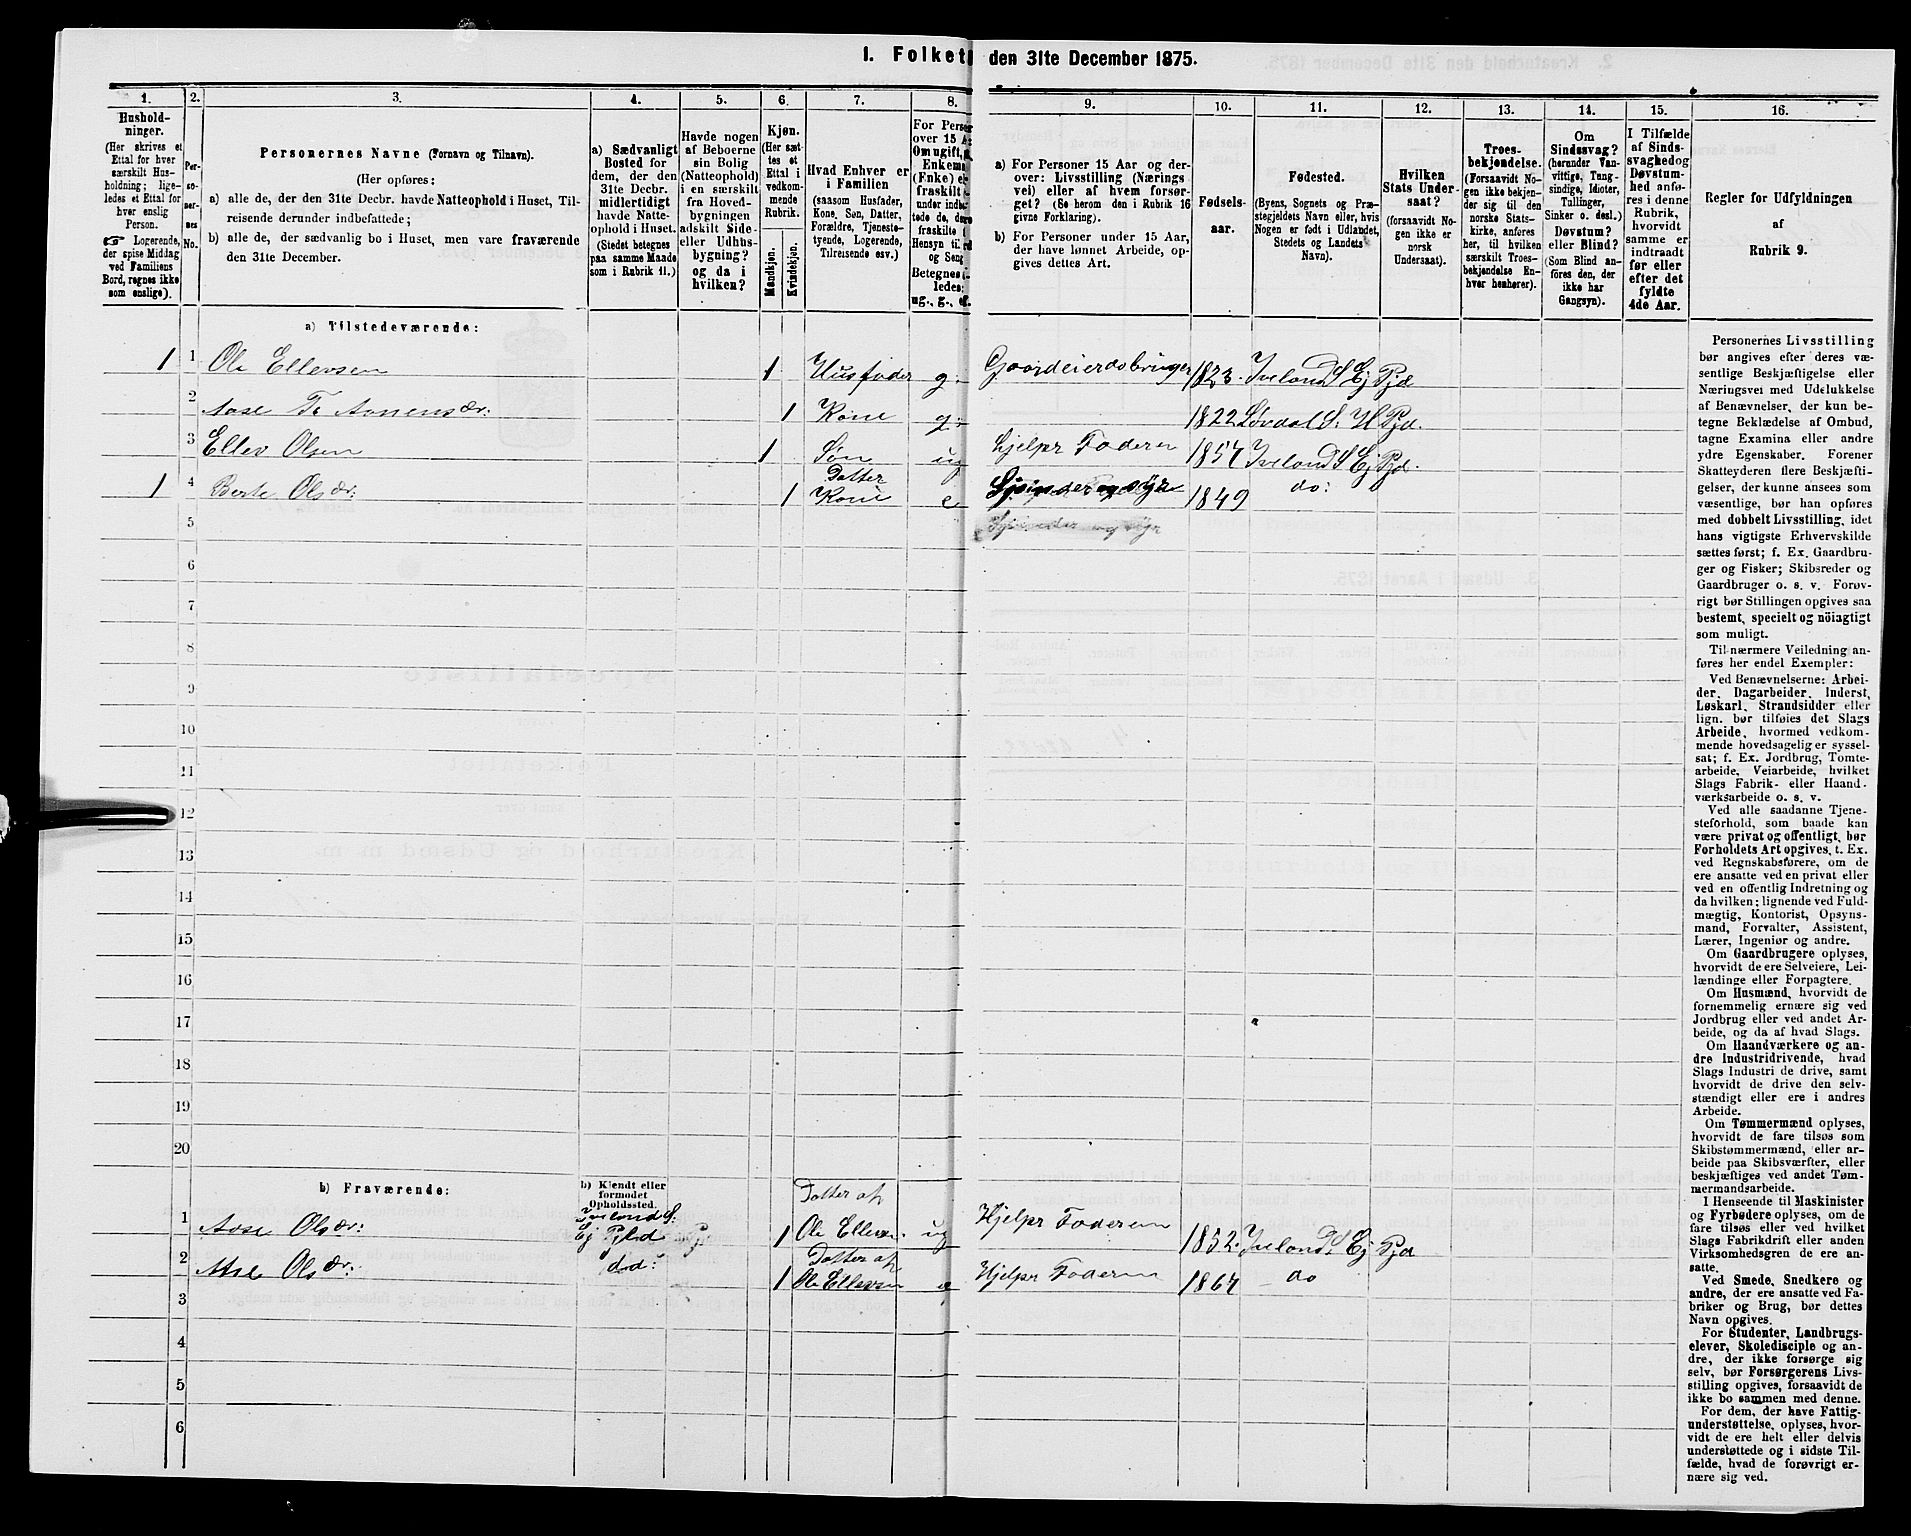 I. Folket den 31te December 1875.
1. 2. 3. 4. 5. 6. 7. 8. 9. 10. 11. 12. 13. 14. 15. 16.
Hushold-
ninger.
(Her skrives et
Ettal for hver
særskilt Hus-
holdning; lige-
ledes et Ettal for
hver enslig
Person.
☞ Logerende,
der spise Middag
ved Familiens
Bord, regnes ikke
som enslige).
Per-
so-
ner-
nes
No.
Personernes Navne (Fornavn og Tilnavn).
(Her opføres:
a) alle de, der den 31te Decbr. havde Natteophold i Huset, Til-
reisende derunder indbefattede;
b) alle de, der sædvanlig bo i Huset, men vare fraværende
den 31te December.
a) Sædvanligt
Bosted for
dem, der den
31te Decbr.
midlertidigt
havde Natte-
ophold i Huset.
(Stedet betegnes
paa samme Maade
som i Rubrik 11.)
Havde nogen
af Beboerne
sin Bolig
(Natteophold)
i en særskilt
fra Hoved-
bygningen
adskilt Side-
eller Udhus-
bygning?
og da i
hvilken?
Kjøn.
(Her sæt-
tes et
Ettal i
vedkom-
mende
Rubrik.
Mandkjøn.
Kvindekjøn.
Hvad Enhver er
i Familien
(saasom Husfader,
Kone, Søn, Datter,
Forældre, Tjeneste-
tyende, Logerende,
Tilreisende osv.)
For Perso
over 15 A
Om ugift,
Enkema
(Enke) e
fraskilt
under indb
tede de, de
fraskilte
Hensyn ti
og Seng
Betegnes
ledes:
ug., g., e
a) For Personer 15 Aar og der-
over: Livsstilling (Nærings
vei) eller af hvem forsør-
get? (Se herom den i Rubrik 16
givne Forklaring).
b) For Personer under 15 Aar,
der have lønnet Arbeide, op-
gives dettes Art.
Fødsels-
aar.
Fødested.
(Byens, Sognets og Præ-
stegjeldets Navn eller, hvis
Nogen er født i Udlandet,
Stedets og Landets
Navn).
Hvilken
Stats Under-
saat?
(forsaavidt No-
gen ikke er
norsk
Undersaat).
Troes-
bekjendelse.
(Forsaavidt No-
gen ikke bekjen-
der sig til den
norske Stats-
kirke, anføres
her, til hvilken
særskilt Troes-
bekjendelse En-
hver henhører).
Om
Sindssvag?
(herunder Van-
vittige, Tung-
sindige, Idioter,
Tullinger,
Sinker o. desl.)
Døvstum?
eller Blind?
(Som Blind an-
føres den, der
ikke har
Gangsyn).
I Tilfælde
af Sinds-
svaghed og
Døvstum-
hed anfø-
res i denne
Rubrik,
hvorvidt
samme er
indtraadt
før eller
efter det
fyldte
4de Aar.
Regler for Udfyldningen
af
Rubrik 9.
a) Tilstedeværende:
1 1 Ole Ellevsen 1 Husfader g. Gaardeierdobruger 1823. Iveland S Ej Pjd
2 Aase Tr Arnensdr. 1 Kone g. 1822 Løvdal S. H Pjd.
3 Ellev Olsen 1 Søn ug Hjelpr Faderen 1857 Iveland S Ej Pjd.
1 4 Berte Olsdr: 1 Datter Kone e 1849 do:
5
Spinder og syr
6
7
8
9
10
11
12
13
14
15
16
17
18
19
20
b) Fraværende:
b) Kjendt eller
formodet
Opholdssted.
1 Aase Olsdr: Iveland S: Ej Pjld 1 Datter af Ole Ellevsen ug Hjelpr Faderen 1852. Iveland S. Ej Pjd
2 Olsdr: do: 1 Datter af Ole Ellevsen Hjelpr Faderen 1864 do
3
4
5
6
Personernes Livsstilling
bør angives efter deres væ-
sentlige Beskjæftigelse eller
Næringsvei med Udelukkelse
af Benævnelser, der kun be-
tegne Beklædelse af Ombud,
tagne Examina eller andre
ydre Egenskaber. Forener
Skatteyderen flere Beskjæfti-
gelser, der kunne ansees som
væsentlige, bør han opføres
med dobbelt Livsstilling, idet
hans vigtigste Erhvervskilde
sættes først; f. Ex. Gaardbru-
ger og Fisker; Skibsreder og
Gaardbruger o. s. v. Forøv-
rigt bør Stillingen opgives saa
bestemt, specielt og nöiagtigt
som muligt.
Til nærmere Veiledning an-
føres her endel Exempler:
Ved Benævnelserne: Arbei-
der, Dagarbeider, Inderst,
Løskarl, Strandsidder eller
lign. bør tilføies det Slags
Arbeide, hvormed vedkom-
mende hovedsagelig er syssel-
sat; f. Ex. Jordbrug, Tomte-
arbeide, Veiarbeide, hvilket
Slags Fabrik- eller Haand-
værksarbeide o. s. v.
Ved alle saadanne Tjene-
steforhold, som baade kan
være privat og offentligt, bør
Forholdets Art opgives, t. Ex.
ved Regnskabsførere, om de
ere ansatte ved en privat eller
ved en offentlig Indretning og
da hvilken; lignende ved Fuld-
mægtig, Kontorist, Opsyns-
mand, Forvalter, Assistent,
Lærer, Ingeniør og andre.
Om Gaardbrugere oplyses,
hvorvidt de ere Selveiere, Lei-
lændinge eller Forpagtere.
Om Husmænd, hvorvidt de
fornemmelig ernære sig ved
Jordbrug eller ved andet Ar-
beide, og da af hvad Slags.
Om Haandværkere og an-
dre Industridrivende, hvad
Slags Industri de drive, samt
hvorvidt de drive den selv-
stændigt eller ere i andres
Arbeide.
Om Tømmermænd oplyses,
hvorvidt de fare tilsøs som
Skibstømmermænd, eller ar-
beide paa Skibsværfter, eller
beskjæftiges ved andet Tøm-
mermandsarbeide.
I Henseende til Maskinister
og Fyrbødere oplyses, om de
fare tilsøs eller ved hvilket
Slags Fabrikdrift eller anden
Virksomhedsgren de ere an-
satte.
Ved Smede, Snedkere og
andre, der ere ansatte ved Fa-
briker og Brug, bør dettes
Navn opgives.
For Studenter, Landbrugs-
elever, Skoledisciple og an-
dre, der ikke forsørge sig
selv, bør Forsørgerens Livs-
stilling opgives, forsaavidt de
ikke bo sammen med denne.
For dem, der have Fattig-
understøttelse, oplyses, hvor-
vidt de ere helt eller delvis
understøttede og i sidste Til-
fælde, hvad de forøvrigt er-
nære sig ved.